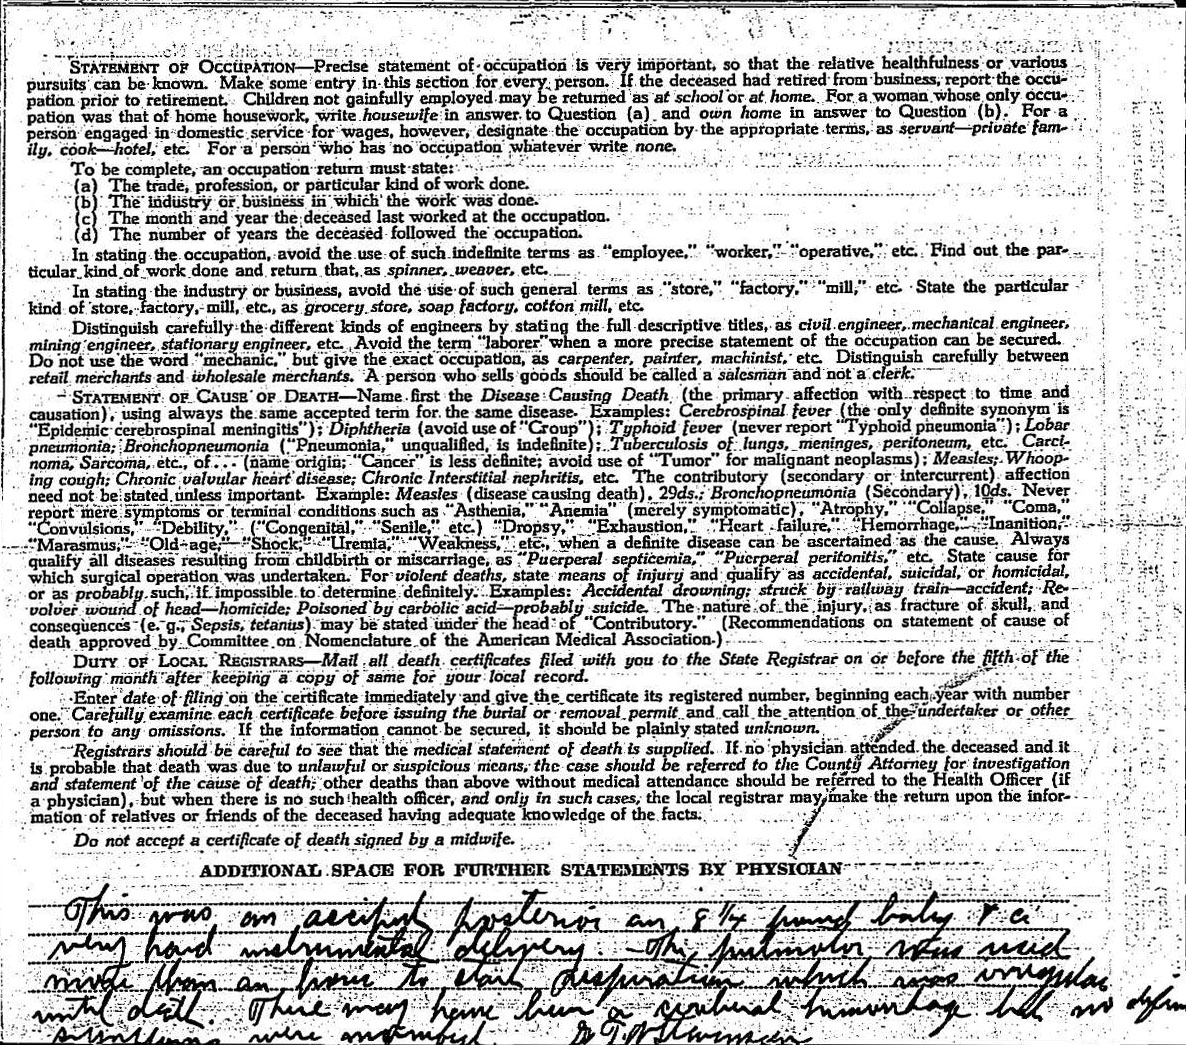 STATEMENT OF OCCUPATION—Precise statement of occupation is very important, so that the relative healthfulness or various
pursuits can be known. Make some entry in this section for every person. If the deceased had retired from business, report the occu-
pation prior to retirement. Children not gainfully employed may be returned as at school or at home. For a woman whose only occu-
pation was that of home housework, write housewife in answer to Question (a) and own home in answer to Question (b). For a
person engaged in domestic service for wages, however, designate the occupation by the appropriate terms, as servant—private fam-
ily, cook—hotel, etc. For a person who has no occupation whatever write none.
To be complete, an occupation return must state:
(a) The trade, profession, or particular kind of work done.
(b) The industry or business in which the work was done.
(c) The month and year the deceased last worked at the occupation.
(d) The number of years the deceased followed the occupation.
In stating the occupation, avoid the use of such indefinite terms as "employee," "worker," "operative," etc. Find out the par-
ticular kind of work done and return that, as spinner, weaver, etc.
In stating the industry or business, avoid the use of such general terms as "store," "factory," "mill," etc. State the particular
kind of store, factory, mill, etc., as grocery store, soap factory, cotton mill, etc.
Distinguish carefully the different kinds of engineers by stating the full descriptive titles, as civil engineer, mechanical engineer,
mining engineer, stationary engineer, etc. Avoid the term "laborer" when a more precise statement of the occupation can be secured.
Do not use the word "mechanic," but give the exact occupation, as carpenter, painter, machinist, etc. Distinguish carefully between
retail merchants and wholesale merchants. A person who sells goods should be called a salesman and not a clerk.
STATEMENT OF CAUSE OF DEATH—Name first the Disease Causing Death (the primary affection with respect to time and
causation), using always the same accepted term for the same disease. Examples: Cerebrospinal fever (the only definite synonym is
"Epidemic cerebrospinal meningitis"); Diphtheria (avoid use of "Croup"); Typhoid fever (never report "Typhoid pneumonia"); Lobar
pneumonia; Bronchopneumonia ("Pneumonia," unqualified, is indefinite); Tuberculosis of lungs, meninges, peritoneum, etc. Carci-
noma, Sarcoma, etc., of . . . (name origin; "Cancer" is less definite; avoid use of "Tumor" for malignant neoplasms); Measles; Whoop-
ing cough; Chronic valvular heart disease; Chronic Interstitial nephritis, etc. The contributory (secondary or intercurrent) affection
need not be stated unless important. Example: Measles (disease causing death), 29ds.; Bronchopneumonia (Secondary), 10ds. Never
report mere symptoms or terminal conditions such as "Asthenia," "Anemia" (merely symptomatic), "Atrophy," "Collapse," "Coma,"
"Convulsions," "Debility," ("Congenital," "Senile," etc.) "Dropsy," "Exhaustion," "Heart failure," "Hemorrhage," "Inanition,"
"Marasmus," "Old age," "Shock," "Uremia," "Weakness," etc., when a definite disease can be ascertained as the cause. Always
qualify all diseases resulting from childbirth or miscarriage, as "Puerperal septicemia," "Puerperal peritonitis," etc. State cause for
which surgical operation was undertaken. For violent deaths, state means of injury and qualify as accidental, suicidal, or homicidal,
or as probably such, if impossible to determine definitely. Examples: Accidental drowning; struck by railway train—accident; Re-
volver wound of head—homicide; Poisoned by carbolic acid—probably suicide. The nature of the injury, as fracture of skull, and
consequences (e. g., Sepsis, tetanus) may be stated under the head of "Contributory." (Recommendations on statement of cause of
death approved by Committee on Nomenclature of the American Medical Association.)
DUTY OF LOCAL REGISTRARS—Mail all death certificates filed with you to the State Registrar on or before the fifth of the
following month after keeping a copy of same for your local record.
Enter date of filing on the certificate immediately and give the certificate its registered number, beginning each year with number
one. Carefully examine each certificate before issuing the burial or removal permit and call the attention of the undertaker or other
person to any omissions. If the information cannot be secured, it should be plainly stated unknown.
Registrars should be careful to see that the medical statement of death is supplied. If no physician attended the deceased and it
is probable that death was due to unlawful or suspicious means, the case should be referred to the County Attorney for investigation
and statement of the cause of death; other deaths than above without medical attendance should be referred to the Health Officer (if
a physician), but when there is no such health officer, and only in such cases, the local registrar may make the return upon the infor-
mation of relatives or friends of the deceased having adequate knowledge of the facts.
Do not accept a certificate of death signed by a midwife.
ADDITIONAL SPACE FOR FURTHER STATEMENTS BY PHYSICIAN
This was an posterior an 8 1/4 pound baby & a
very hard instrumental delivery. The pulmotor was used
more than an hour to start respiration which was irregular
until death. There may have been a cerebral hemorrhage but no
were Dr T W Stevenson